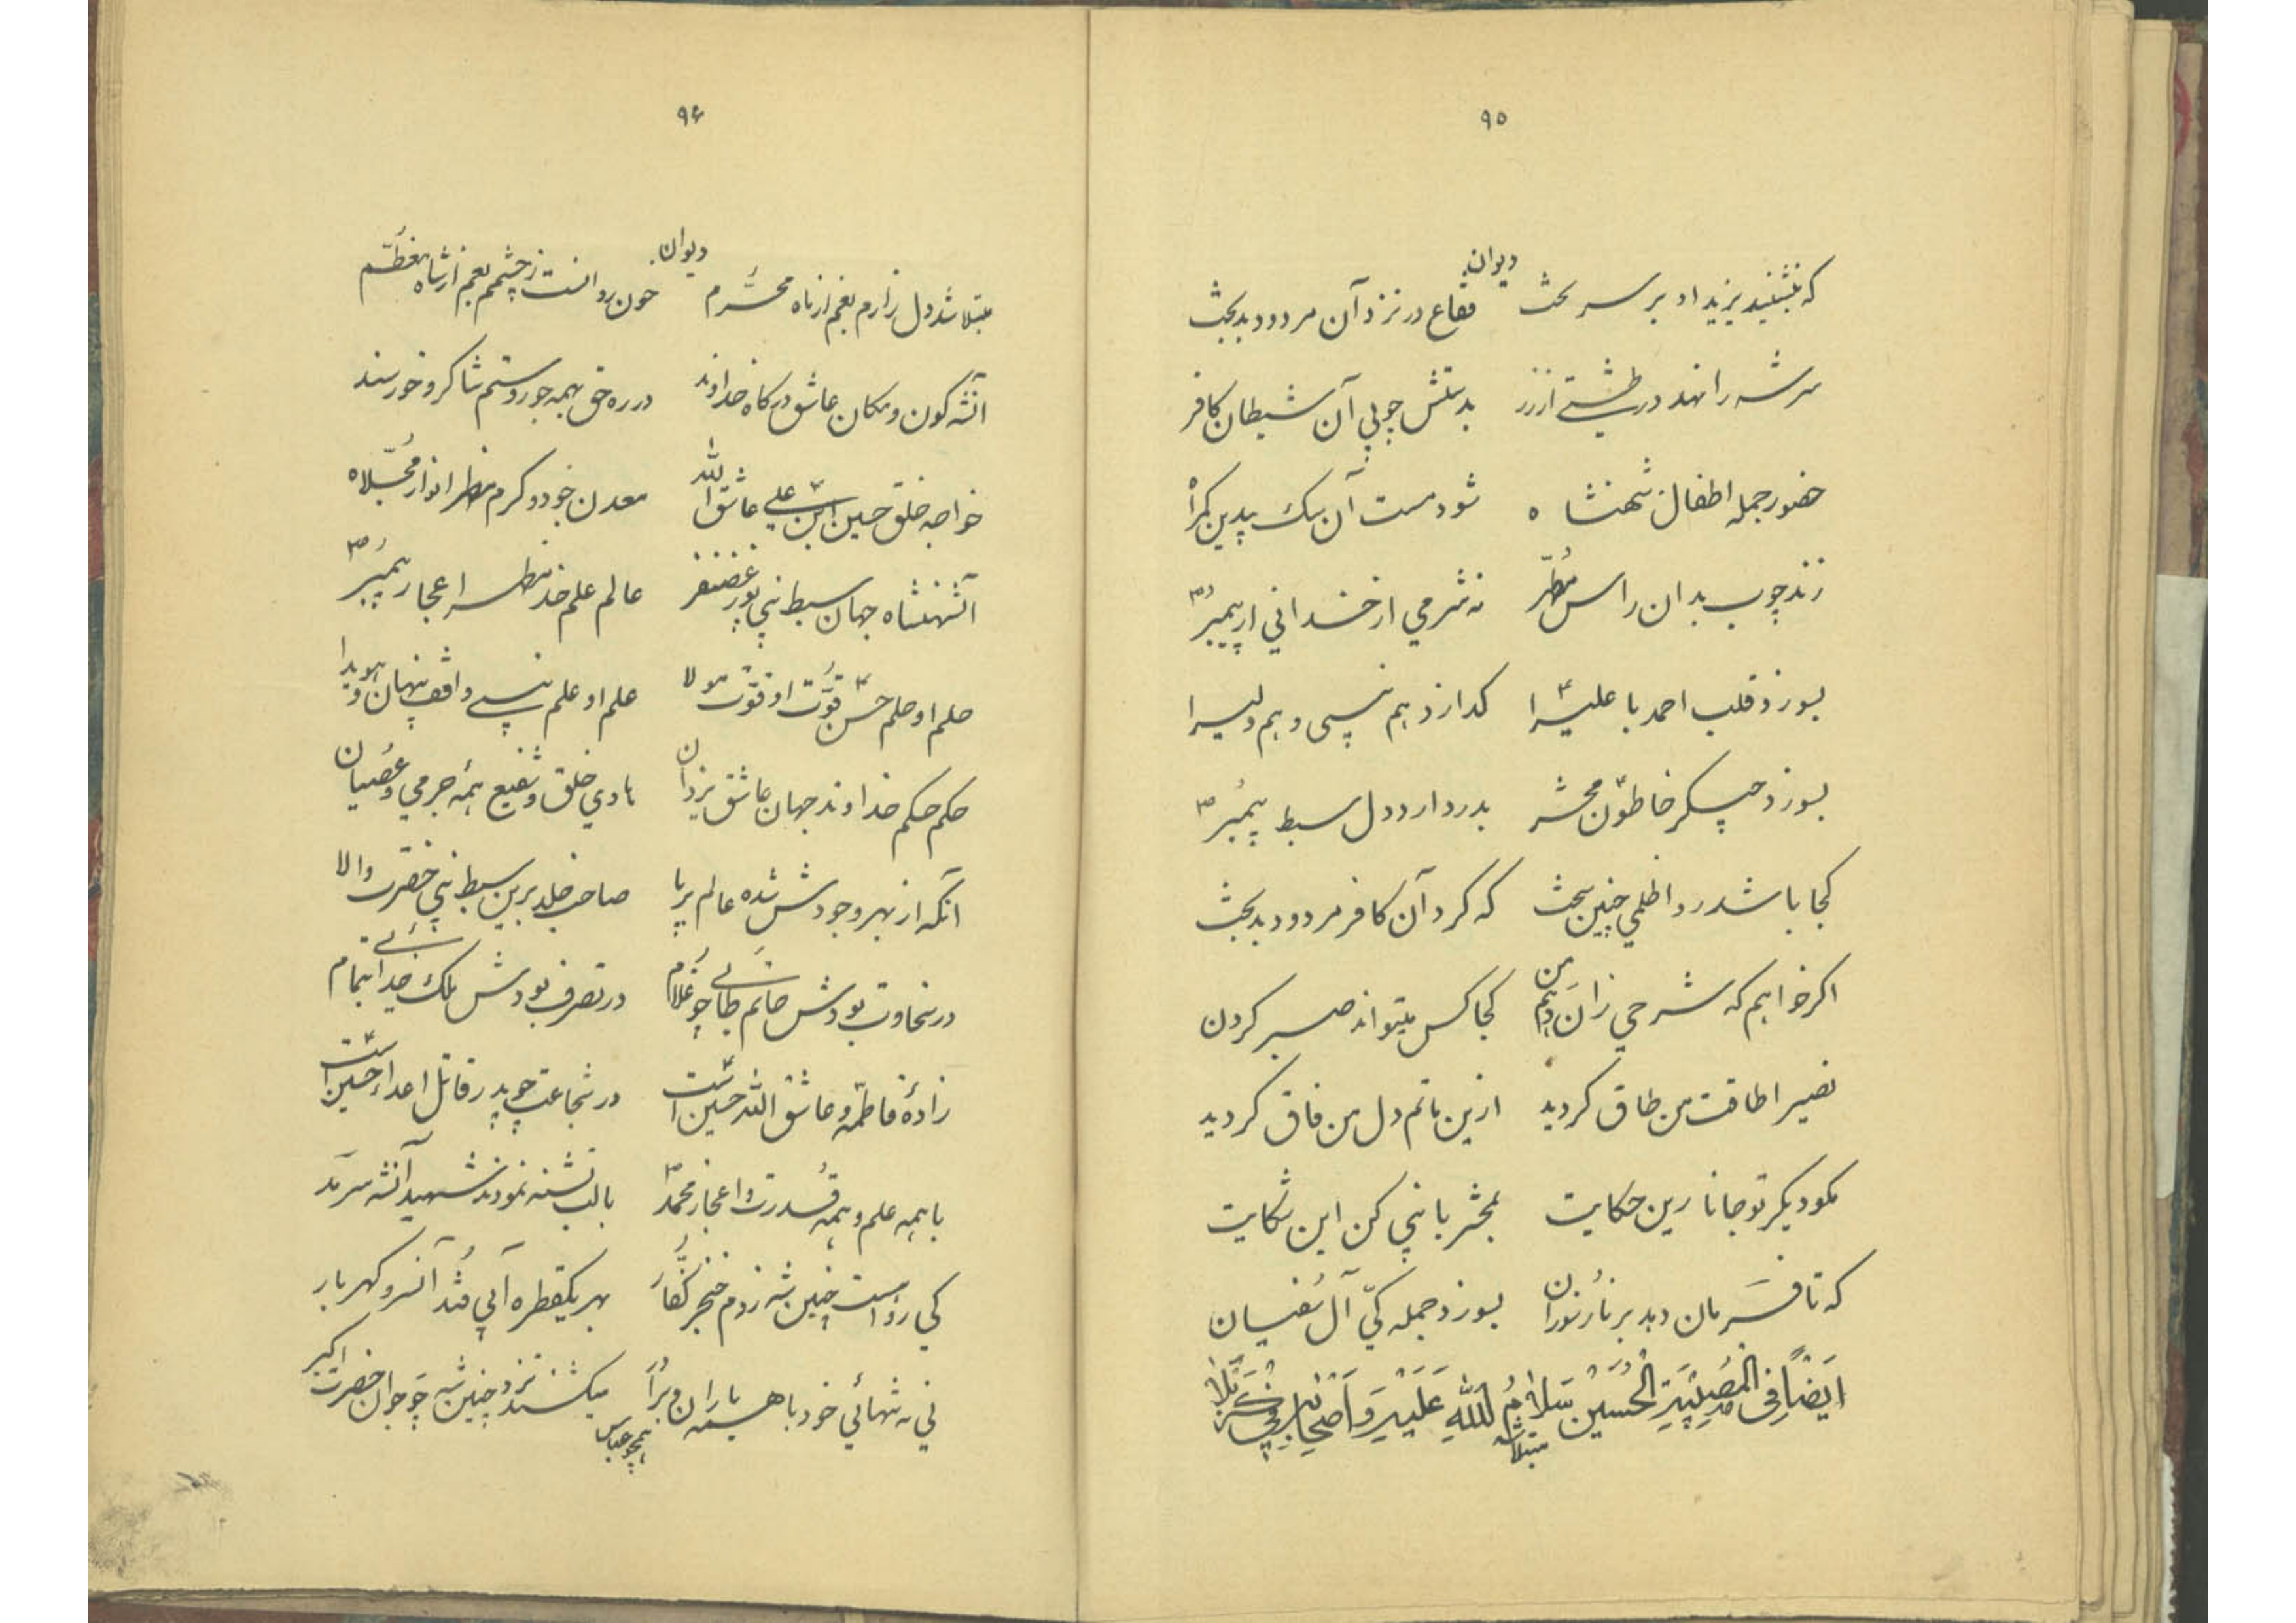 ۹۵
دیوان
که بنشیند یزید او بر سر تخت فقاع در نزد آن مردود بدبخت
سر شه را نهد در طشتی از زر بدستش چوبی آن شیطان کافر
حضور جمله اطفال شهنشاه شود مست آن سک بیدین کمراه
زند چوب بدان راس مطهّر نه شرمی از خدا نی از پیمبر ص
بسوزد قلب احمد با علی را کدازد هم نبی و هم ولی را
بسوزد چون جکر خاطون محشر بدرد ارد دل سبط پیمبر ص
کجا باشد روا ظلمی چنین سخت که کرد آن کافر مردود بدبخت
اکر خواهم که شرحی زان دهم من کجا کس میتواند صبر کردن
نصیرا طاقت من طاق کردید ازین ماتم دل من فاق کردید
مکو دیکر تو جانا زین حکایت بمحشر با نبی کن این شکایت
که تا فرمان دهد بر نار نوران بسوزد جمله کیّ آل سفیان
ایضاً فی المصیبة الحسین سلام الله علیه و اصحابه فی کربلا
مبتلا شد
۹۶
دیوان
مبتلا شد دل زارم بغم از ماه محرّم خون روانست ز چشمم بغم از شاه معظّم
آنشه کون و مکان عاشق درکاه خداوند در ره حق همه جور و ستم شاکر و خورسند
خواجه خلق حسین ابن علی عاشق الله معدن جود و کرم مظهر انوار مجلّاه
آنشهنشاه جهان سبط نبی پور غضنفر عالم علم خدا مظهر اعجاز پیمبر ص
حلم او حلم حسن قوّت او قوّت مولا علم او علم نبی واقف پنهان و هویدا
حکم حکم خداوند جهان عاشق یزدان هادی خلق و شفیع همه جرمی و عصیان
آنکه از بهر وجودش شده عالم برپا صاحب خلد برین سبط نبی حضرت والا
در سخاوت بودش حاتم طائی چو غلام در تصرف بودش ملک خدائی بتمام
زادهٔ فاطمه و عاشق الله حسین است در شجاعت چو پدر قاتل اعداء حسین است
با همه علم و همه قدرت و اعجاز محمّد ص با لب تشنه نمودند شهید آنشه سرمد
کی رواست چنین شه ز دم خنجر کفّار بهر یکقطره آبی فتد آنسرو کهربار
نی نه تنهائی خود با همه یاران و برادر میکشند نزد چنین شه چو جوان حضرت اکبر
همچو عباس